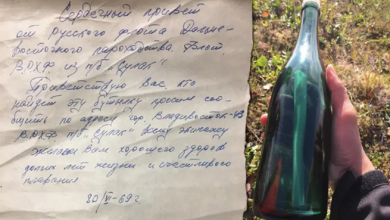 Сердечный привет
от русского флота Дальне-
восточного пароходства. Флот
ВРХФ из п/б "Сулак"
Приветствую Вас, кто
найдет эту бутылку просим соо-
бщить по адресу гор. Владивосток-43
ВРХФ п/б "Сулак" всему экипажу
Желаем Вам хорошего здоровья
долгих лет жизни и счастливого
плавания
20/VI-69г